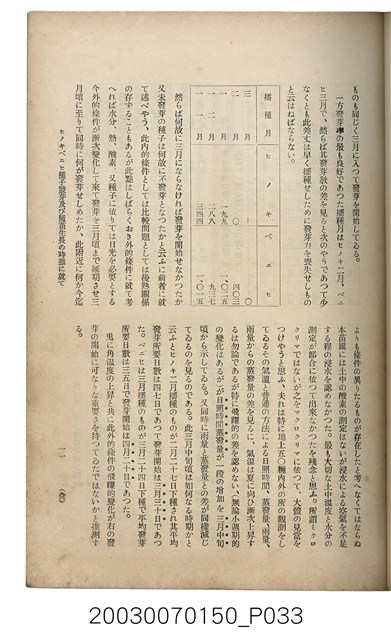 ものも同じく三月に入つて發芽を開始してゐる。
一方發芽率の最も良好であつた播種月はヒノキ二月、ベニ
ヒ三月で、然らば其發芽數の差を見ると次のやうであつて少
なくとも此差丈は早く播種せしために發芽力を喪失せしもの
と云はねばならない。
播種月 ヒノキ ベニヒ
三月 〇
二月 〇 四〇三
一月 一九九 一、〇二五
一二月
一一月 三四四 一、〇一五
然らば何故に三月にならなければ發芽を開始せなかつたか
又未發芽の種子は何故に不發芽となつたかと云ふに前者に就
て述べやう、此內的條件としては比較問題としては後熟關係
の存することもあるが此點はしばらくおき外的條件に就て考
へれば水分、熱、酸素、又種子に依つては日光を必要とする
今外的條件が漸次變化して來て發芽を三月頃まで延期させ三
月頃に至りて同時に何が發芽せしめたか、此附近に何か今迄
ヒノキベニヒ種子發芽及び稚苗生長の時期に就て
よりも條件の異りたるものが存在したと考へなくてはならぬ
本苗圃には土中の酸素の測定はないが浸水による空氣を不足
する程の浸水を認めなかつた。最も大切な土中溫度と水分の
測定が部合に依つて出來なかつたを殘念と思ふ。所謂ミクロ
クリマではないが之をマクロクリマに依つて、大體の見當を
つけやうと思ふ、夫れは特に地上五〇糎內外の所の觀測をし
てゐるその氣溫と普通の方法による日照時間、蒸發量、雨量、
雨量からの蒸發量の差を見るに、氣溫は夏に向ひ漸次上昇す
るは勿論であるが特に飛躍的の差を認めない(無論小週期的
の變化はあるが)が日照時間蒸發量が一段の增加を三月中旬
頃から示してゐる。又同時に雨量と蒸發量との差が同樣減じ
てゐるのを見るのである。此三月中旬頃は如何なる時期かと
云ふとヒノキ二月播種のものが二月二十七日下種され其平均
發芽所要日數は四七日であつて發芽開始は三月三十日であつ
た。ベニヒは三月播種のものが三月二十四日下種で平均發芽
所要日數は三五日で發芽開始は四月二十日であつた。
兎に角溫度の上昇と共に此外的條件の飛躍的變化が右の發
芽の開始に可なりな重要さを持つてゐたではないかと推測す
る。
一一
20030070150_P033